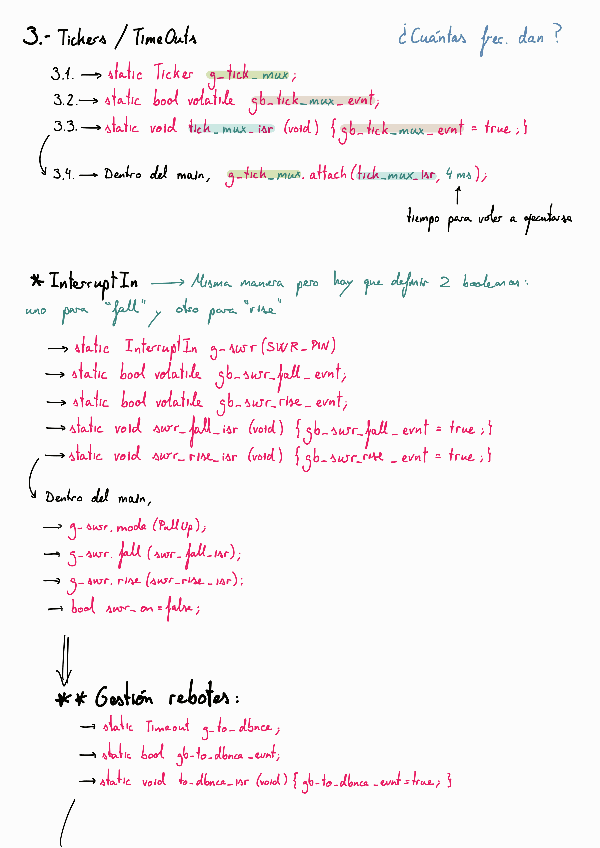 3.- Tickers / TimeOuts ¿Cuántas frec. dan?
3.1. → static Ticker g_tick_mux;
3.2. → static bool volatile gb_tick_mux_evnt;
3.3. → static void tick_mux_isr (void) {gb_tick_mux_evnt = true;}
3.4. → Dentro del main, g_tick_mux.attach(tick_mux_isr, 4ms);
tiempo para volver a ejecutarse
* InterruptIn → Misma manera pero hay que definir 2 booleanos:
uno para "fall" y otro para "rise"
→ static InterruptIn g_swr (SWR_PIN)
→ static bool volatile gb_swr_fall_evnt;
→ static bool volatile gb_swr_rise_evnt;
→ static void swr_fall_isr (void) {gb_swr_fall_evnt = true;}
→ static void swr_rise_isr (void) {gb_swr_rise_evnt = true;}
Dentro del main,
→ g_swr.mode (PullUp);
→ g_swr.fall (swr_fall_isr);
→ g_swr.rise (swr_rise_isr);
→ bool swr_on = false;
** Gestión rebotes:
→ static Timeout g_to_dbnce;
→ static bool gb_to_dbnce_evnt;
→ static void to_dbnce_isr (void) {gb_to_dbnce_evnt = true;}